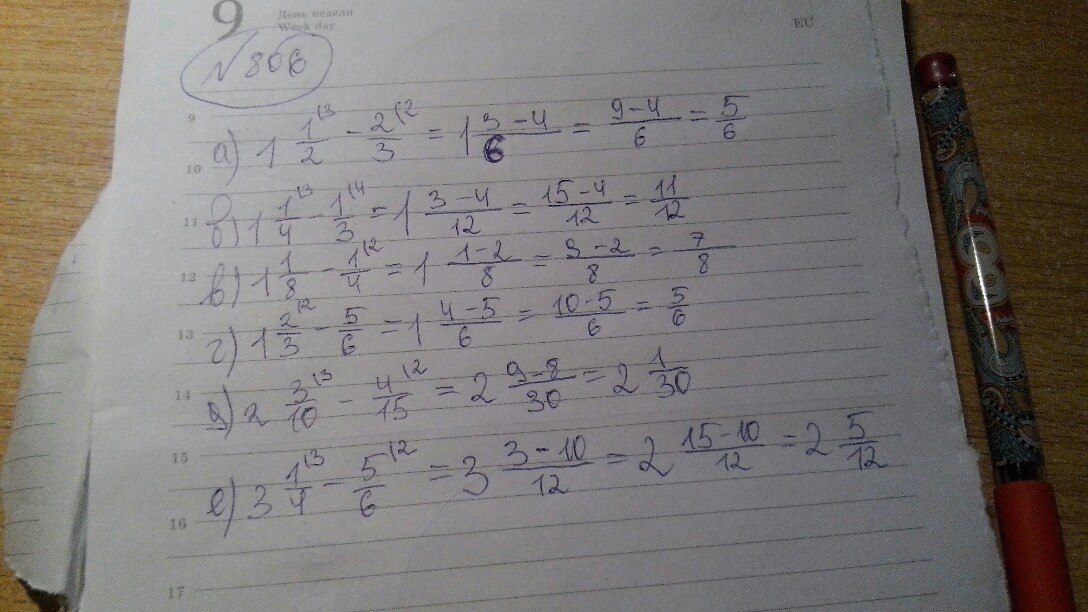 9
День недели
Week day
EU
№806
9
а) 1 1/2 \3 − 2/3 \2 = 1 3−4/6 = 9−4/6 = 5/6
10
11
б) 1 1/4 \3 − 1/3 \4 = 1 3−4/12 = 15−4/12 = 11/12
12
в) 1 1/8 − 1/4 \2 = 1 1−2/8 = 9−2/8 = 7/8
13
г) 1 2/3 \2 − 5/6 = 1 4−5/6 = 10−5/6 = 5/6
14
д) 2 3/10 \3 − 4/15 \2 = 2 9−8/30 = 2 1/30
15
е) 3 1/4 \3 − 5/6 \2 = 3 3−10/12 = 2 15−10/12 = 2 5/12
16
17